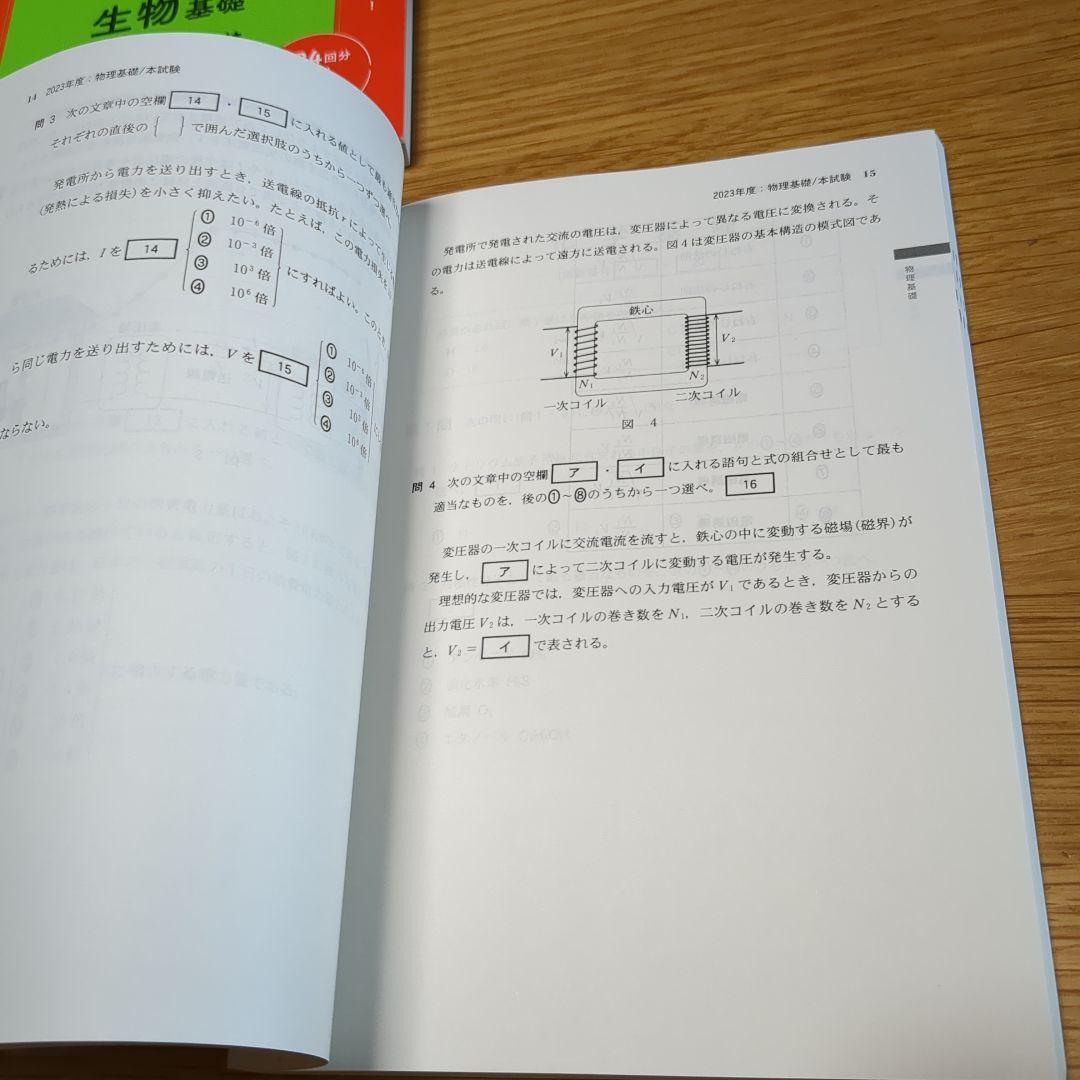 生物基礎
回分
14 2023年度：物理基礎/本試験
問 3 次の文章中の空欄 14 ・ 15 に入れる値として最も
それぞれの直後の { } で囲んだ選択肢のうちから一つずつ選べ
発電所から電力を送り出すとき，送電線の抵抗 r によって
(発熱による損失)を小さく抑えたい。たとえば，この電力損失を
るためには，I を 14 { ① 10⁻⁶ 倍 ② 10⁻³ 倍 ③ 10³ 倍 ④ 10⁶ 倍 } にすればよい。このとき，
ら同じ電力を送り出すためには，V を 15 { ① 10⁻⁶ 倍 ② 10⁻³ 倍 ③ 10³ 倍 ④ 10⁶ 倍 }
ならない。
2023年度：物理基礎/本試験 15
発電所で発電された交流の電圧は，変圧器によって異なる電圧に変換される。そ
の電力は送電線によって遠方に送電される。図4は変圧器の基本構造の模式図であ
る。
物理基礎
鉄心
V₁
V₂
N₁
N₂
一次コイル
二次コイル
図 4
問 4 次の文章中の空欄 ア ・ イ に入れる語句と式の組合せとして最も
適当なものを，後の①～⑧のうちから一つ選べ。 16
変圧器の一次コイルに交流電流を流すと，鉄心の中に変動する磁場(磁界)が
発生し， ア によって二次コイルに変動する電圧が発生する。
理想的な変圧器では，変圧器への入力電圧が V₁ であるとき，変圧器からの
出力電圧 V₂ は，一次コイルの巻き数を N₁，二次コイルの巻き数を N₂ とする
と，V₂ = イ で表される。